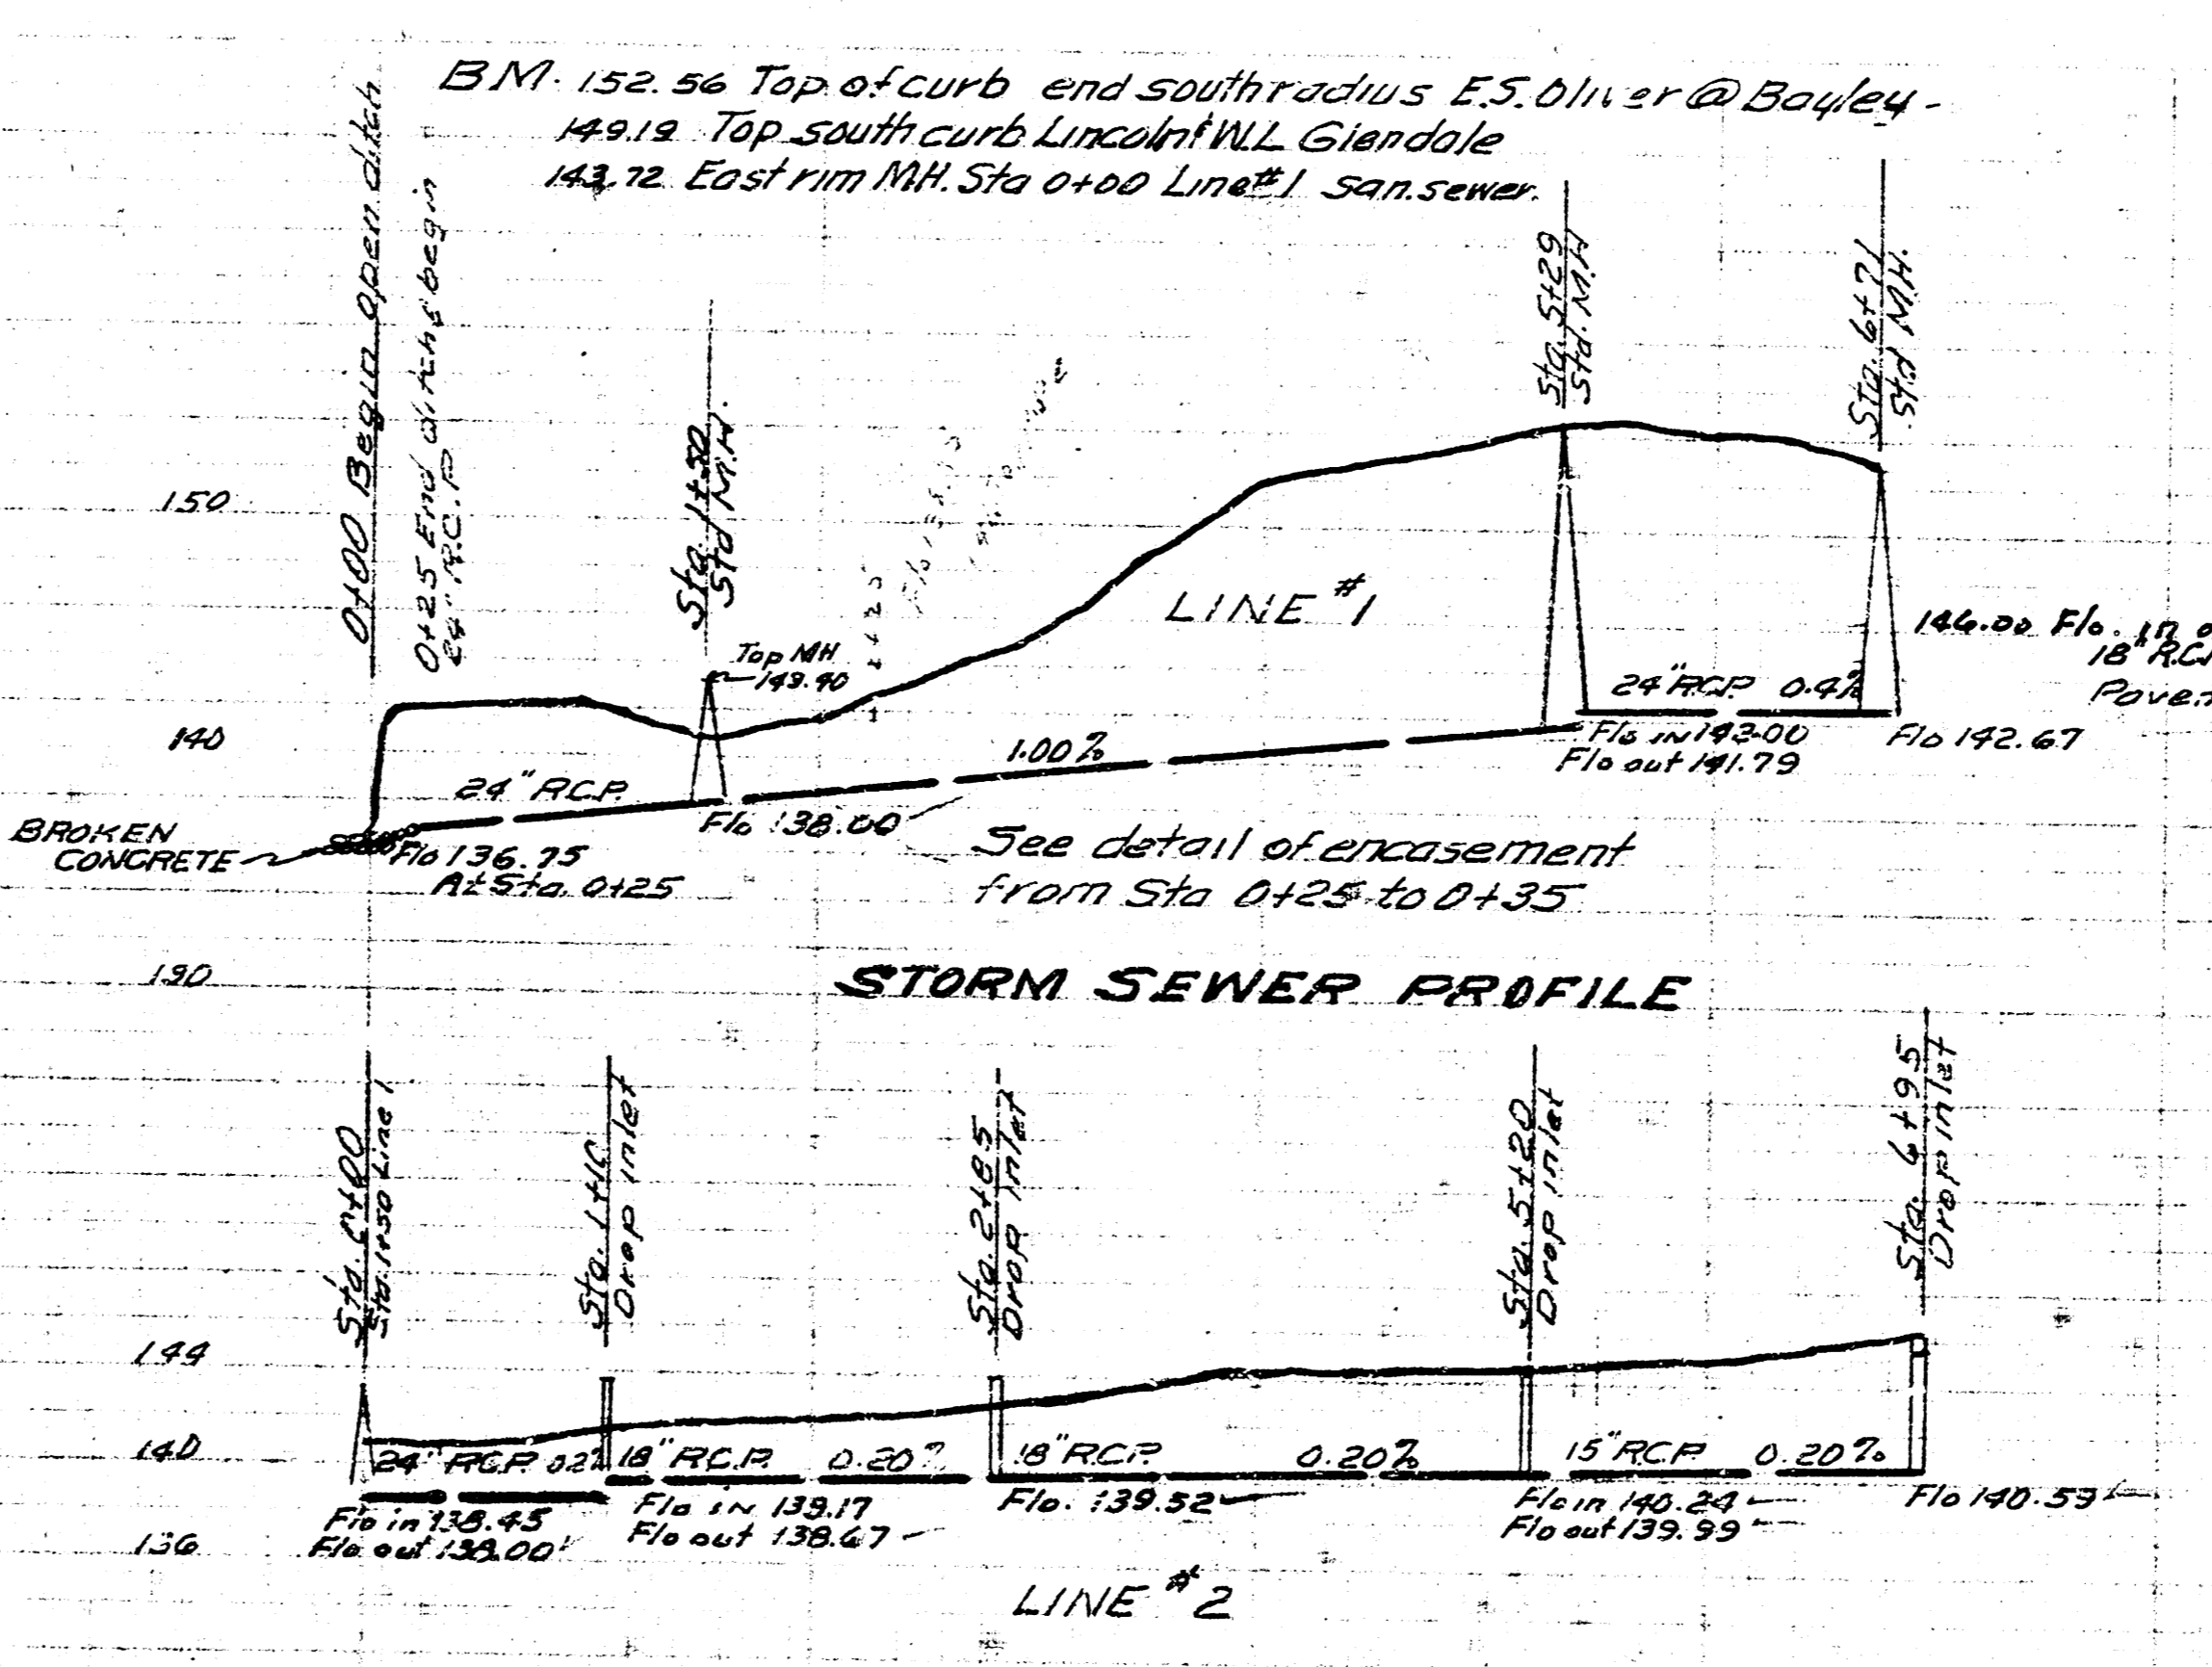 B.M. 152.56 Top of curb end south radius E.S. Oliver @ Bayley -
149.19 Top south curb Lincoln & W.L Glendale
143.72 East rim M.H. Sta 0+00 Line #1 san. sewer.
0+00 Begin open ditch
0+25 End ditch & begin
24" R.C.P
Sta. 1+50
Std M.H.
Sta. 5+29
Std. M.H
Sta. 6+71
Std M.H.
150
140
130
Top MH
LINE #1
146.00 Flo. in
18" R.C.
24" R.C.P. 0.4%
1.00%
Flo 142.67
Flo out 141.79
24" R.C.P.
Flo 138.00
BROKEN
CONCRETE
Flo 136.75
At Sta. 0+25
See detail of encasement
from Sta 0+25 to 0+35
STORM SEWER PROFILE
Sta. 0+00
Sta. 1+50 Line 1
Drop inlet
Sta. 2+85
Drop inlet
Sta. 5+20
Drop inlet
Sta. 6+95
Drop inlet
144
140
136
24" R.C.P. 0.2%
18" R.C.P. 0.20%
18" R.C.P. 0.20%
15" R.C.P. 0.20%
Flo in 138.45
Flo out 138.00
Flo IN 139.17
Flo out 138.67
Flo. 139.52
Flo in 140.24
Flo out 139.99
Flo 140.59
LINE #2